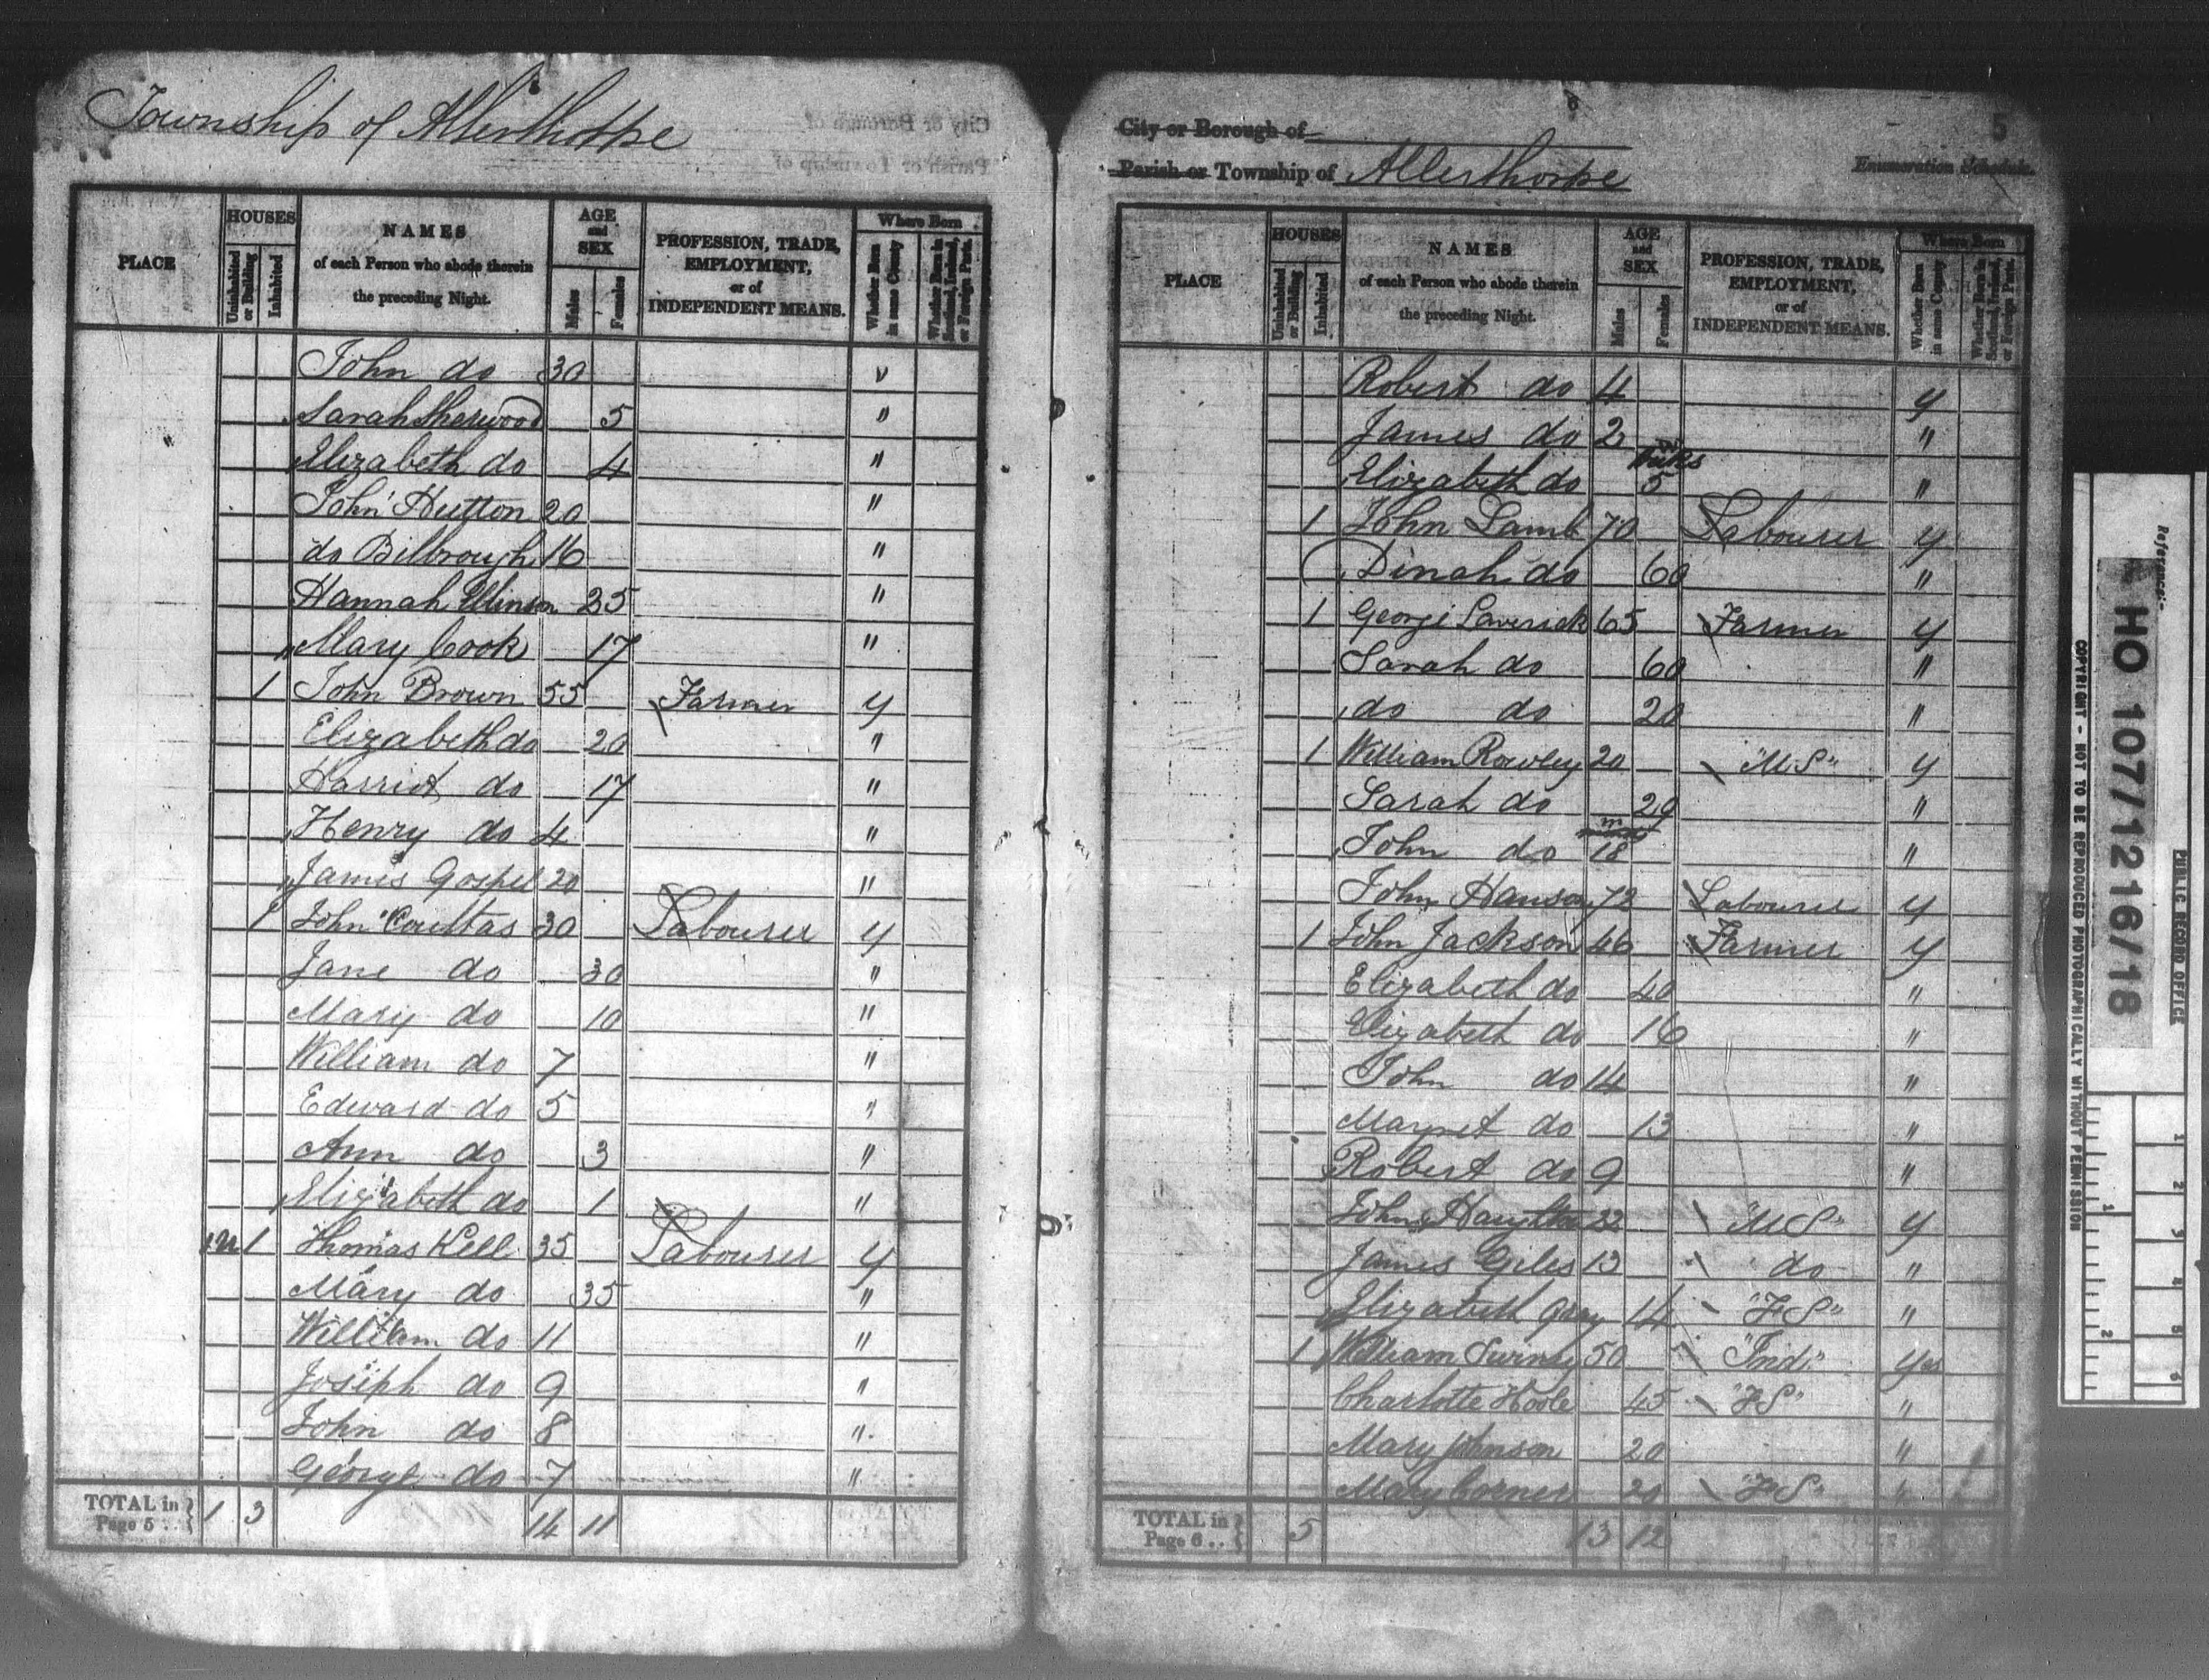 Township of Allerthorpe
PLACE
HOUSES
Uninhabited or Building
Inhabited
NAMES
of each Person who abode therein
the preceding Night.
AGE
and
SEX
Males
Females
PROFESSION, TRADE,
EMPLOYMENT,
or of
INDEPENDENT MEANS.
Where Born
Whether Born in same County
Whether Born in Scotland, Ireland, or Foreign Parts.
John do 30 "
Sarah Sherwood 5 "
Elizabeth do 4 "
John Hutton 20 "
do Bilbrough 16 "
Hannah 25 "
Mary Cook 17 "
1 John Brown 55 Farmer y
Elizabeth do 20 "
Harriot do 17 "
Henry do 4 "
James Gospel 20 "
1 John Coultas 30 Labourer y
Jane do 30 "
Mary do 10 "
William do 7 "
Edward do 5 "
Ann do 3 "
Elizabeth do 1 "
1 Thomas Kell 35 Labourer y
Mary do 35 "
William do 11 "
Joseph do 9 "
John do 8 "
George do 7 "
TOTAL in Page 5 .. 1 3 14 11
5
City or Borough of
Parish or Township of Allerthorpe
Enumeration Schedule.
PLACE
HOUSES
Uninhabited or Building
Inhabited
NAMES
of each Person who abode therein
the preceding Night.
AGE
and
SEX
Males
Females
PROFESSION, TRADE,
EMPLOYMENT,
or of
INDEPENDENT MEANS.
Where Born
Whether Born in same County
Whether Born in Scotland, Ireland, or Foreign Parts.
Robert do 4 y
James do 2 "
Elizabeth do 5 "
1 John Lamb 70 Labourer y
Dinah do 60 "
1 George Laverick 65 Farmer y
Sarah do 60 "
do do 20 "
1 William Rowley 20 "MS" y
Sarah do 29 "
m
John do 18 "
John Hanson 72 Labourer y
1 John Jackson 46 Farmer y
Elizabeth do 40 "
Elizabeth do 16 "
John do 14 "
Margret do 13 "
Robert do 9 "
John 22 "MS" y
James Giles 13 do "
Elizabeth Gray 14 "FS" "
1 William 50 "Ind" Yes
Charlotte Hoole 45 "FS" "
Mary Johnson 20 "
Mary Corner 20 "FS" "
TOTAL in Page 6 .. 5 13 12
Reference:-
HO 107/1216/18
PUBLIC RECORD OFFICE
COPYRIGHT - NOT TO BE REPRODUCED PHOTOGRAPHICALLY WITHOUT PERMISSION
1
2
3
4
5
6
1
2